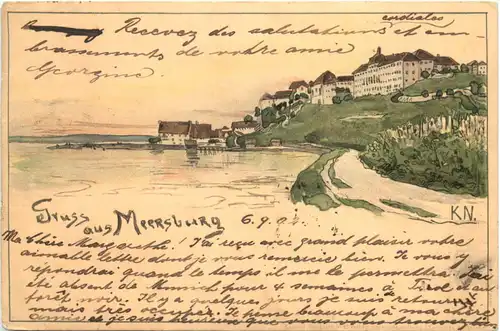 cordiales
Recevez des salutations et em-
brassements de votre amie
Georgine.
K.N.
Gruss
aus Meersburg
6.9.
Ma chère Marguerithe! J'ai reçu avec grand plaisir votre
aimable lettre dont je vous remercie bien. Je vous y
répondrai quand le temps il me le permettra. J'ai
été absent de Munich pour 4 semaines à et
forêt noir. Il y a quelques jours je suis retourné
mais très occupé. Je pense beaucoup à ma chère
amie et je suis heureuse que vous